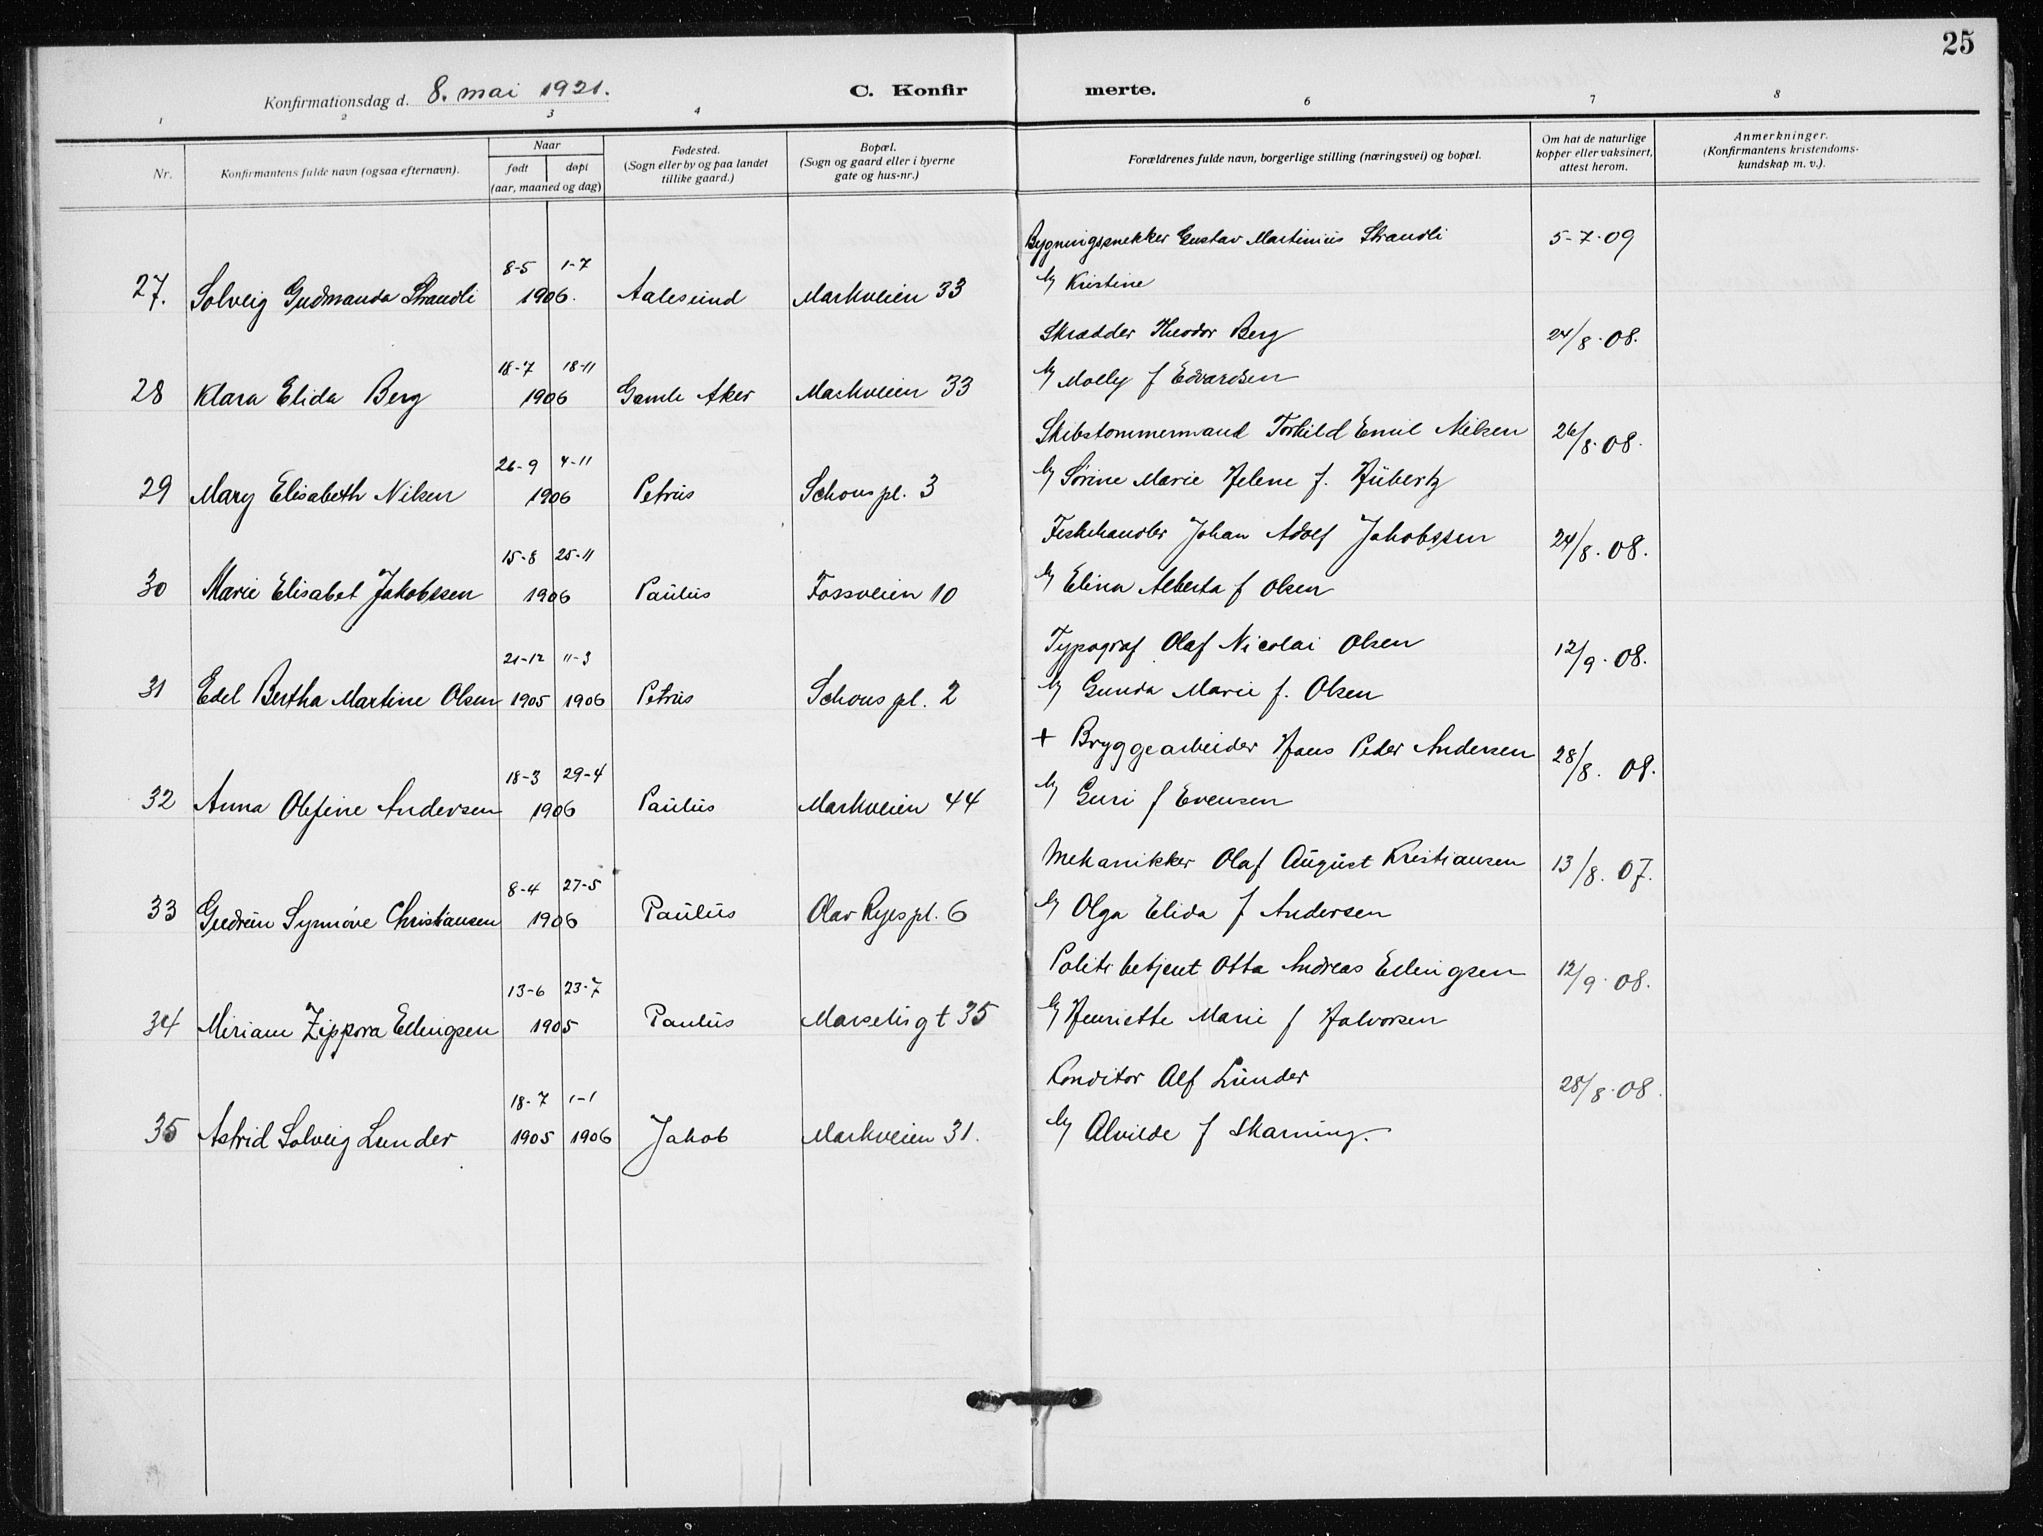 25
Konfirmationsdag d. 8. mai 1921. C. Konfirmerte.
1 2 3 4 6 7 8
Nr. Konfirmantens fulde navn (ogsaa efternavn). Naar født døpt (aar, maaned og dag) Fødested. (Sogn eller by og paa landet tillike gaard.) Bopæl. (Sogn og gaard eller i byerne gate og hus-nr.) Forældrenes fulde navn, borgerlige stilling (næringsvei) og bopæl. Om hat de naturlige kopper eller vaksinert, attest herom. Anmerkninger. (Konfirmantens kristendoms-kundskap m. v.).
Bygningssnekker Gustav Martinius Strandli 5-7-09
8-5 1-7
27. Solveig Gudmanda Strandli 1906. Aalesund Markveien 33 Kristine
Skrædder Theodor Berg 24/8.08.
18-7 18-11
28 Klara Elida Berg 1906 Gamle Aker Markveien 33 Molly f Edvardsen
Skibstømmermand Torkild Emil Nilsen 26/8.08.
26-9 4-11
29 Mary Elisabeth Nilsen 1906 Petrus Schous pl. 3 Sørine Marie Helene f. Hübertz
Fiskehandler Johan Adolf Jakobssen 24/8.08.
15-8 25-11
30 Marie Elisabet Jakobssen 1906 Paulus Fossveien 10 Elina Alberta f Olsen
Typograf Olaf Nicolai Olsen 12/9.08.
21-12 11-3
31 Edel Bertha Martine Olsen 1905 1906 Petrus Schous pl. 2 Gunda Marie f. Olsen
+ Bryggearbeider Hans Peder Andersen 28/8. 08.
18-3 29-4
32 Anna Olefine Andersen 1906 Paulus Markveien 44 Guri f Evensen
Mekanikker Olaf August Kristiansen 13/8.07.
8-4 27-5
33 Gudrun Synnöve Christiansen 1906 Paulus Olav Ryes pl. 6 Olga Elida f Andersen
Politibetjent Otto Andreas Ellingsen 12/9.08.
13-6 23-7
34 Miriam Zippora Ellingsen 1905 Paulus Marselis gt 35 Henriette Marie f Halvorsen
Konditor Alf Lunder 28/8.08.
18-7 1-1
35 Astrid Solveig Lunder 1905 1906 Jakob Markveien 31. Alvilde f Skarning.